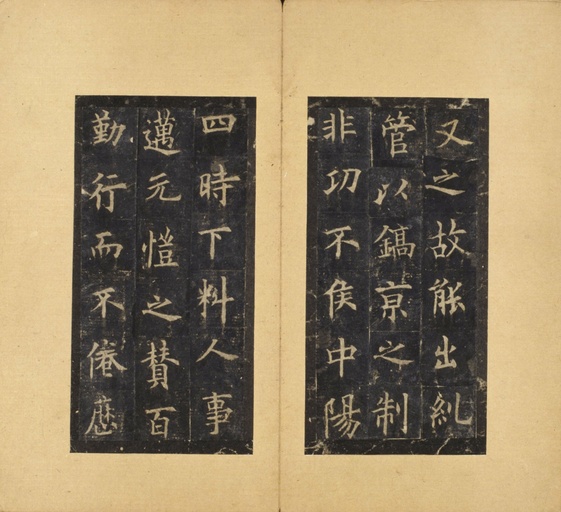 又之故能出糺
管以鎬京之制
非功不侯中陽
四時下料人事
邁元愷之賛百
勤行而不倦歷